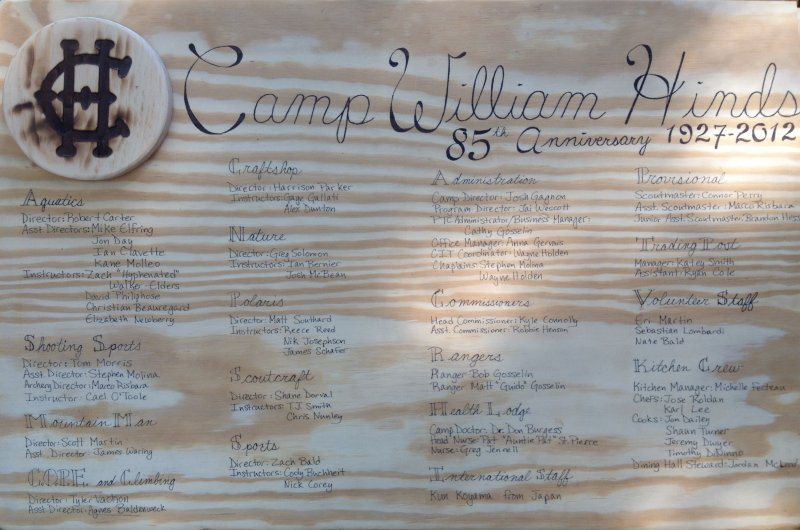 CH
Camp William Hinds
85th Anniversary 1927-2012
Aquatics
Director: Robert Carter
Asst Directors: Mike Elfring
Jon Day
Ian Clavette
Kane Molleo
Instructors: Zach "Hyphenated"
Walker-Elders
David Philghose
Christian Beauregard
Elizabeth Newberry
Shooting Sports
Director: Tom Morris
Asst Director: Stephen Molina
Archery Director: Marco Risbara
Instructor: Cael O'Toole
Mountain Man
Director: Scott Martin
Asst. Director: James Waring
COPE and Climbing
Director: Tyler Vachon
Asst Director: Agnes Baldenweck
Craftshop
Director: Harrison Parker
Instructors: Gage Gallati
Alex Dumton
Nature
Director: Greg Solomon
Instructors: Ian Bernier
Josh McBean
Polaris
Director: Matt Southard
Instructors: Reece Reed
Nik Josephson
James Schafer
Scoutcraft
Director: Shane Dorval
Instructors: T.J. Smith
Chris Nunley
Sports
Director: Zach Bald
Instructors: Cody Buckheit
Nick Corey
Administration
Camp Director: Josh Gagnon
Program Director: Jai Wescott
PTC Administrator/Business Manager:
Cathy Gosselin
Office Manager: Anna Gervais
C.I.T. Coordinator: Wayne Holden
Chaplains: Stephen Molina
Wayne Holden
Commissioners
Head Commissioner: Kyle Connolly
Asst. Commissioner: Robbie Henson
Rangers
Ranger Bob Gosselin
Ranger Matt "Guido" Gosselin
Health Lodge
Camp Doctor: Dr. Don Burgess
Head Nurse: Pat "Auntie Pat" St. Pierre
Nurse: Greg Jennell
International Staff
Kun Koyama from Japan
Provisional
Scoutmaster: Connor Perry
Asst. Scoutmaster: Marco Risbara
Junior Asst. Scoutmaster: Brandon Hess
Trading Post
Manager: Katey Smith
Assistant: Ryan Cole
Volunteer Staff
Eri Martin
Sebastian Lombardi
Nate Bald
Kitchen Crew
Kitchen Manager: Michelle Fecteau
Chefs: Jose Roldan
Karl Lee
Cooks: Jon Dailey
Shaun Turner
Jeremy Dwyer
Timothy DiNinno
Dining Hall Steward: Jordan McLeod